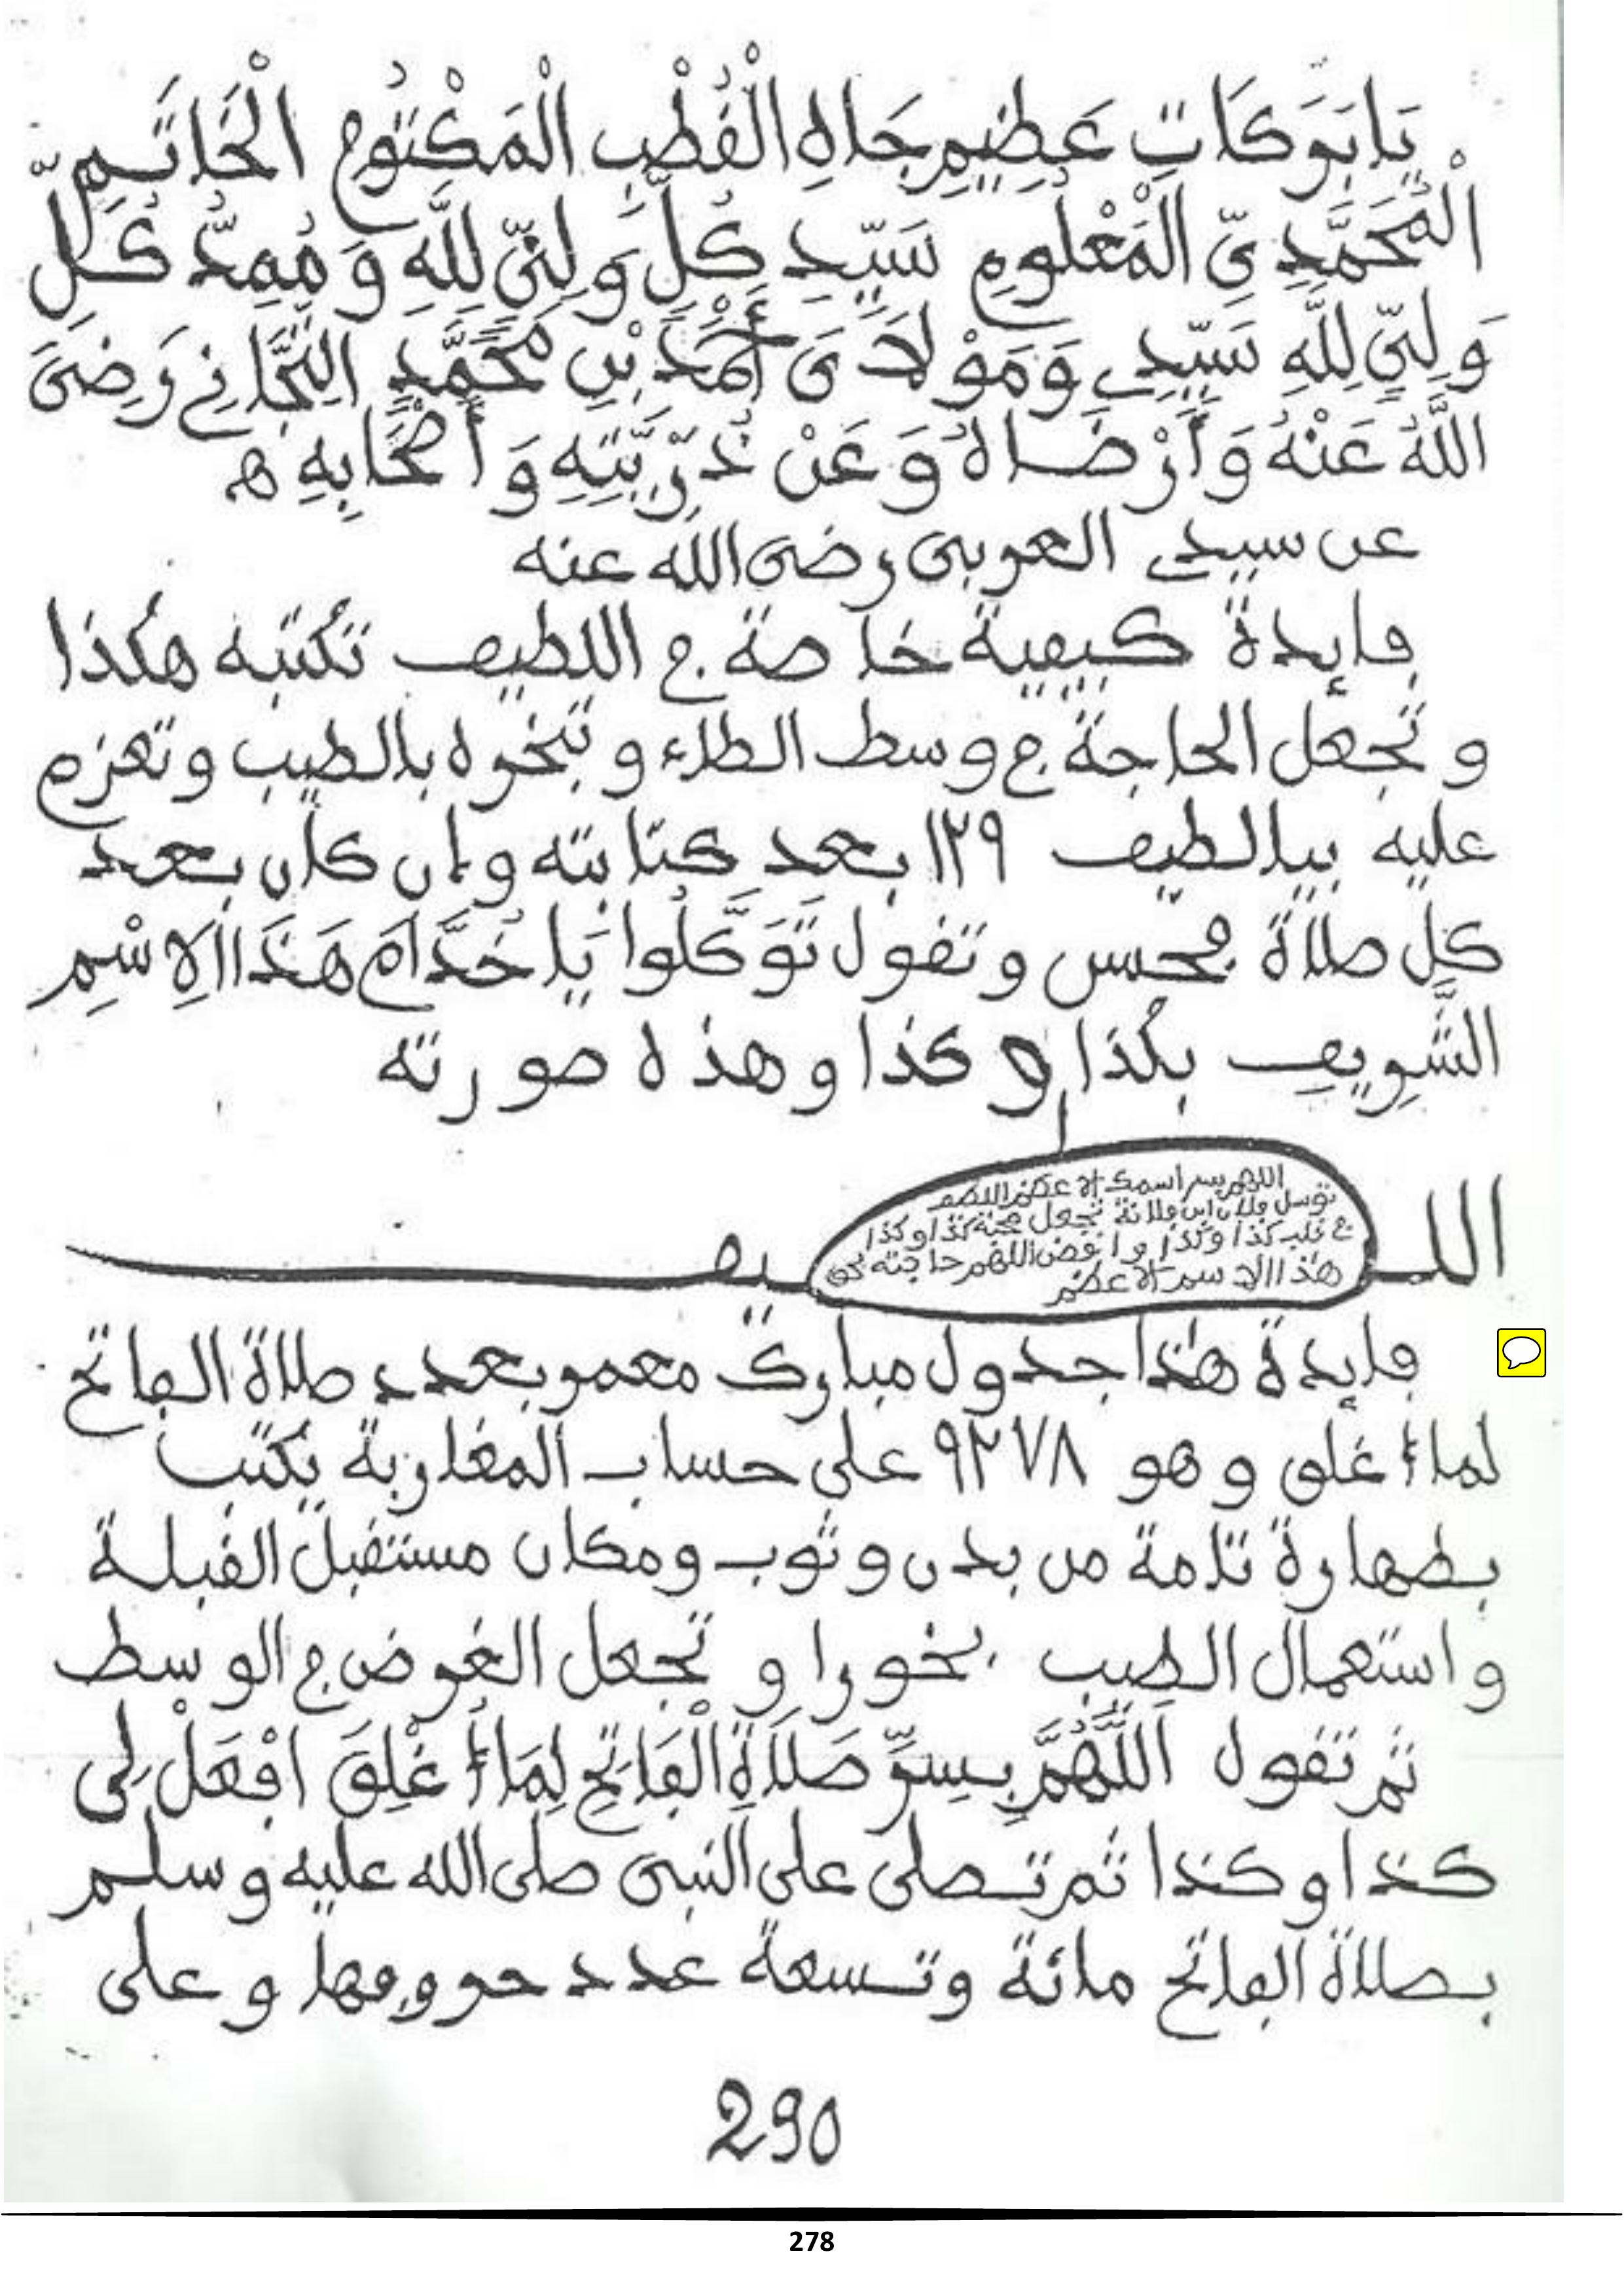 يَا بَرَكَاتِ عَظِيمِ جَاهِ الْقُطْبِ الْمَكْتُومِ الْخَاتَمِ
الْمُحَمَّدِىِّ الْمَعْلُومِ سَيِّدِ كُلِّ وَلِىٍّ لِلَّهِ وَمُمِدِّ كُلِّ
وَلِىٍّ لِلَّهِ سَيِّدِى وَمَوْلَاىَ أَحْمَدَ بْنِ مُحَمَّدٍ التِّجَانِى رَضِىَ
اللَّهُ عَنْهُ وَأَرْضَاهُ وَعَنْ ذُرِّيَّتِهِ وَأَصْحَابِهِ ه
عن سيدى العربى رضى الله عنه
فايدة كيفية خاصة في اللطيف تكتبه هكذا
و تجعل الحاجة في وسط الطاء و تبخره بالطيب و تعزم
عليه بيالطيف ١٢٩ بعد كتابته وان كان بعد
كل صلاة فحسن و تقول تَوَكَّلُوا يَا خُدَّامَ هَذَا الِاسْمِ
الشَّرِيفِ بكذا و كذا و هذه صورته
اللطيف
اللهم بسر اسمك الاعظم
توسل فلان ابن فلانة تجعل محبة كذا و كذا
في قلب كذا و كذا و اقض اللهم حاجته بحق
هذا الاسم الاعظم
فايدة هذا جدول مبارك معمر بعدد صلاة الفاتح
لما أغلق و هو ٩٢٧٨ على حساب المغاربة يكتب
بطهارة تامة من بدن و ثوب و مكان مستقبل القبلة
و استعمال الطيب بخورا و تجعل الغرض في الوسط
ثم تقول اَللَّهُمَّ بِسِرِّ صَلَاةِ الْفَاتِحِ لِمَا أُغْلِقَ افْعَلْ لِى
كذا و كذا ثم تصلى على النبى صلى الله عليه و سلم
بصلاة الفاتح مائة و تسعة عدد حروفها و على
290
278